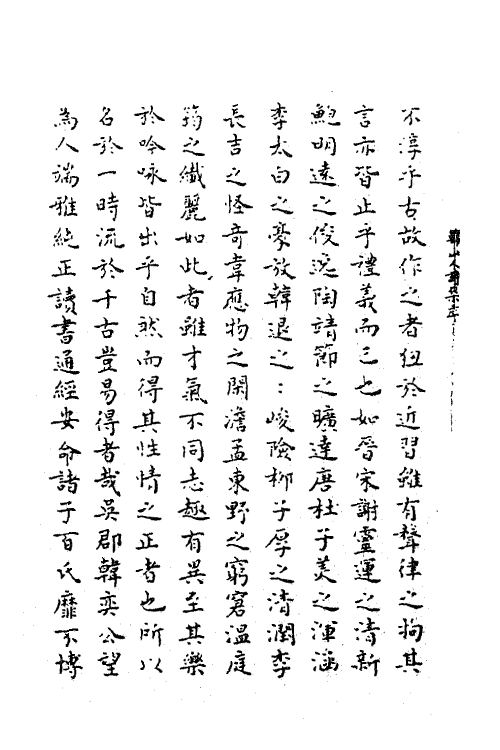 不淳乎古故作之者狃於近習雖有聲律之拘其
言亦皆止乎禮義而已也如晉宋謝靈運之清新
鮑明遠之俊逸陶靖節之曠達唐杜子美之渾涵
李太白之豪放韓退之〻峻險柳子厚之清潤李
長吉之怪奇韋應物之閑澹孟東野之窮窘溫庭
筠之纖麗如此者雖才氣不同志趣有異至其樂
於吟咏皆出乎自然而得其性情之正者也所以
名於一時流於千古豈易得者哉吳郡韓奕公望
為人端雅純正讀書通經安命諸子百氏靡不博
韓山人詩集序